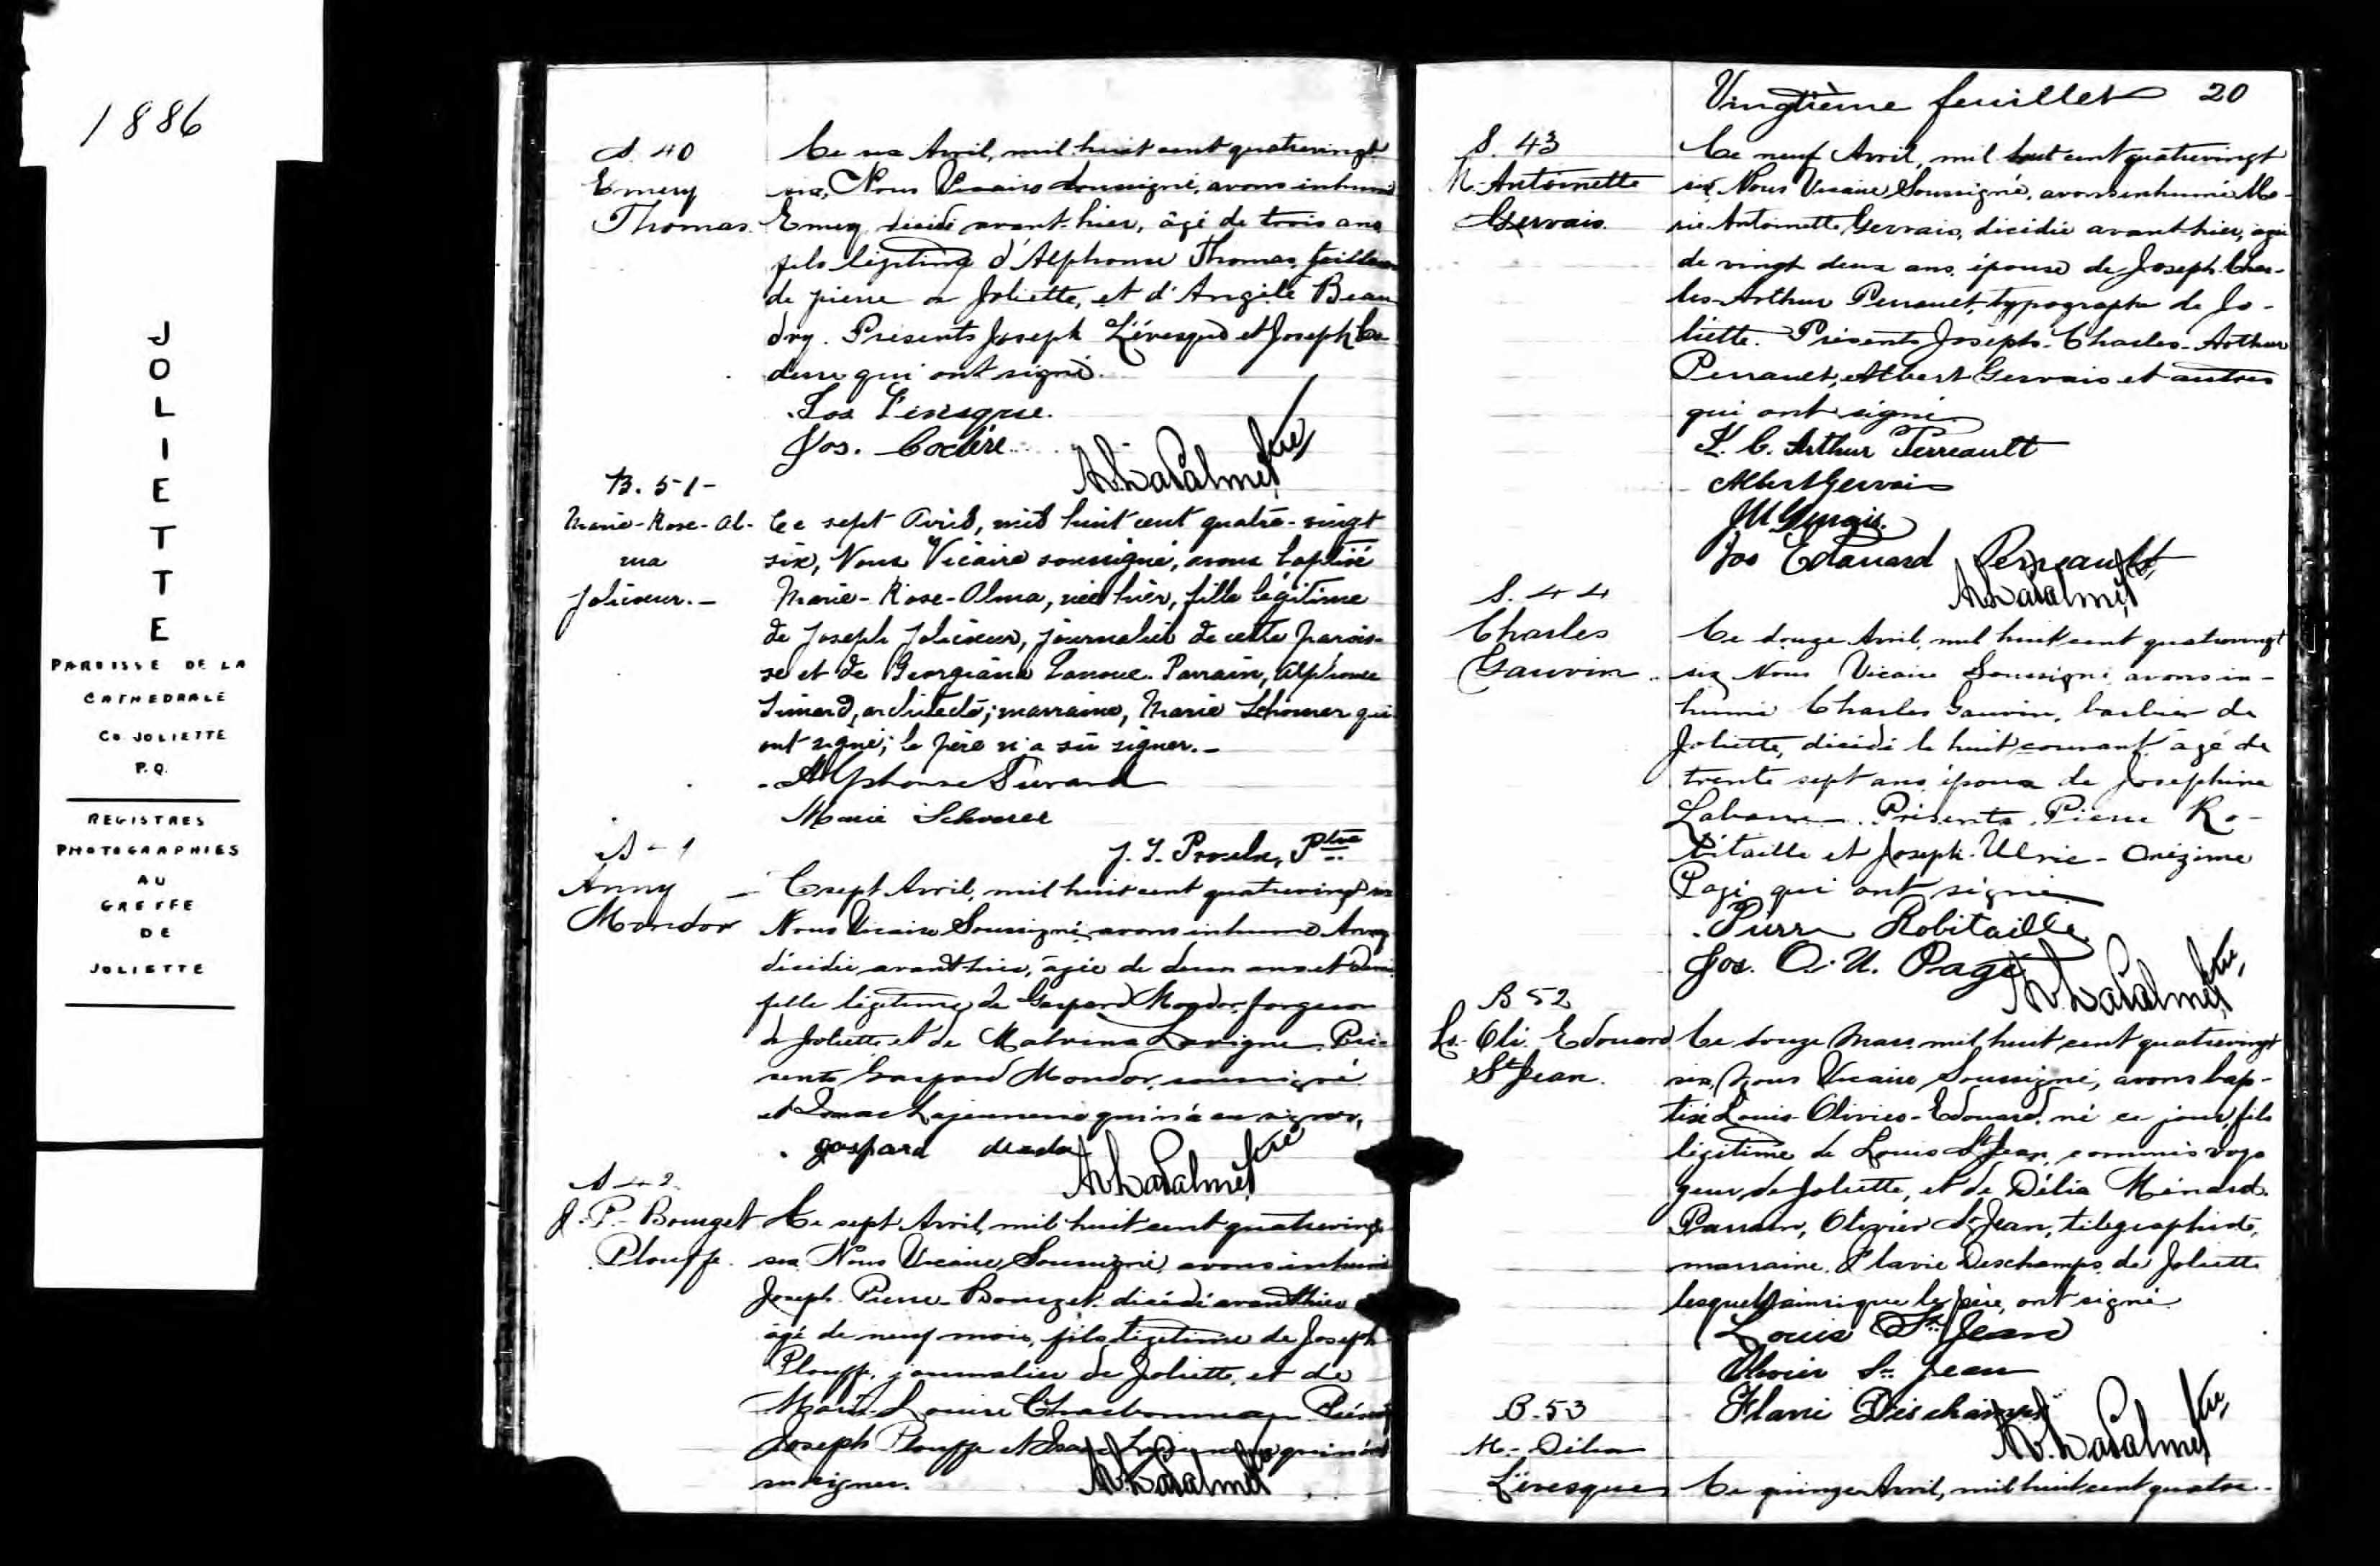 1886
JOLIETTE
PAROISSE DE LA
CATHEDRALE
CO JOLIETTE
P.Q.
REGISTRES
PHOTOGRAPHIES
AU
GREFFE
DE
JOLIETTE
S. 40
Emery
Thomas.
Ce six Avril, mil huit cent quatrevingt
six, Nous Vicaire Soussigné, avons inhumé
Emery décédé avant-hier, âgé de trois ans
fils légitime d'Alphonse Thomas, tailleur
de pierre de Joliette, et d'Angèle Beau
dry. Présents Joseph Lévesque et Joseph Co-
derre qui ont signé.
Jos Lévesque.
Jos. Codère
A. LaPalme, Ptre
B. 51-
Marie-Rose-Al-
ma
Jolicoeur.-
Ce sept Avril, mil huit cent quatre-vingt
six, Nous Vicaire soussigné, avons baptisé
Marie-Rose-Alma, née hier, fille légitime
de Joseph Jolicoeur, journalier de cette parois-
se et de Georgiana Lanoue. Parrain, Alphonse
architecte; marraine, Marie qui
ont signé; le père n'a su signer.-
Alphonse
Marie
J. Proulx, Ptre
Anny
Mondor
Ce sept Avril, mil huit cent quatrevingt six
Nous Vicaire Soussigné avons inhumé Anny
décédée avant hier, âgée de deux ans et demi
fille légitime de Gaspard Mondor, forgeron
de Joliette et de Malvina Lavigne. Pré-
sents Gaspard Mondor, soussigné
et Isaac Lajeunesse qui n'a su signer,
gaspard
A. LaPalme, Ptre
S 42.
J.-P.-Bourget
Plouffe.
Ce sept Avril, mil huit cent quatrevingt
six Nous Vicaire Soussigné, avons inhumé
Joseph-Pierre-Bourget. décédé avant hier
âgé de neuf mois, fils légitime de Joseph
Plouffe, journalier de Joliette, et de
Marie-Louise Charbonneau. Présents
Joseph Plouffe et Isaac Lajeunesse qui n'ont
su signer.
A. LaPalme
Vingtième feuillet 20
S. 43
M.-Antoinette
Gervais.
Ce neuf Avril, mil huit cent quatrevingt
six, Nous Vicaire Soussigné, avons inhumé Ma-
rie-Antoinette Gervais, décédée avant-hier, agée
de vingt deux ans, épouse de Joseph-Char-
les-Arthur Perrault, typographe de Jo-
liette. Présents Joseph-Charles-Arthur
Perrault, Albert Gervais et autres
qui ont signé
C. Arthur Perreault
Albert Gervais
Gervais.
Jos Edouard Perreault,
A. LaPalme, Ptre
S. 44
Charles
Gauvin
Ce douze Avril, mil huit cent quatrevingt
six, Nous Vicaire Soussigné, avons in-
humé Charles Gauvin, barbier de
Joliette, décédé le huit courant âgé de
trente sept ans, époux de Josephine
Présents, Pierre Ro-
bitaille et Joseph-Ulric-Onézime
Pagé, qui ont signé
Pierre Robitaille
Jos. O. U. Pagé
A. LaPalme, Ptre
B 52
Ls.-Oli. Edouard
St Jean.
Ce douze Mars mil huit cent quatrevingt
six, Nous Vicaire Soussigné, avons bap-
tisé Louis-Olivier-Edouard, né ce jour, fils
légitime de Louis St Jean, commis voya
geur de Joliette, et de Délia Ménard.
Parrain, Olivier St Jean, télégraphiste,
marraine, Flavie Deschamps de Joliette
lesquels, ainsi que le père, ont signé.
Louis St. Jean
Olivier St. Jean
Flavie Deschamps
A. LaPalme, Ptre
B-53
M.-Délia
Lévesque
Ce quinze Avril, mil huit cent quatre-